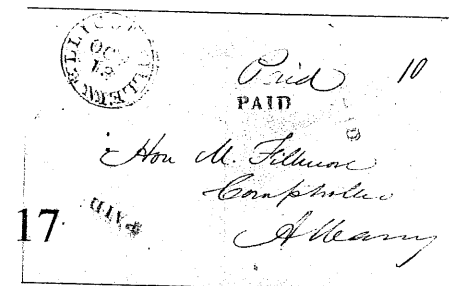 ELLICOTTVILLE N.Y.
OCT
13
Paid 10
PAID
Hon M. Fillmore
Comptroller
Albany
PAID
17